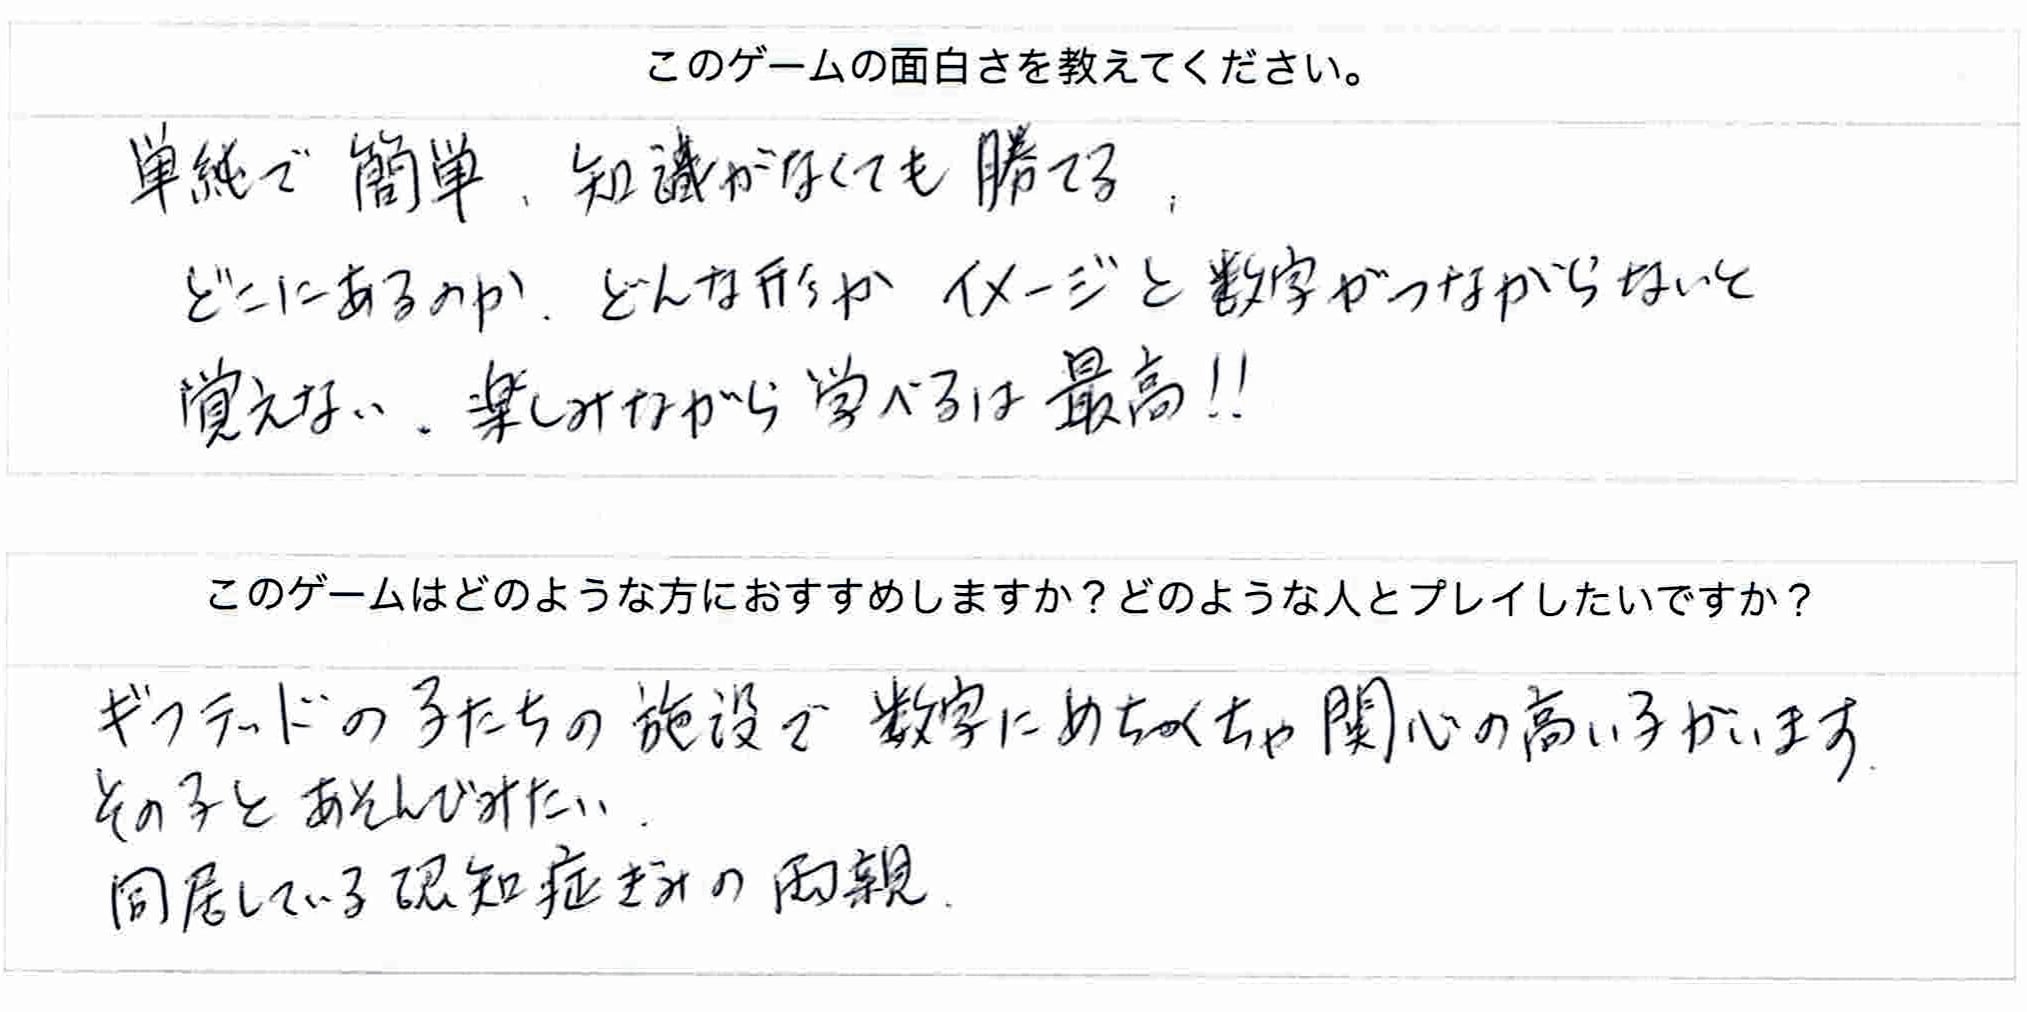 このゲームの面白さを教えてください。
単純で簡単、知識がなくても勝てる、
どこにあるのか、どんな形か イメージと数字がつながらないと
覚えない。楽しみながら学べるは最高!!
このゲームはどのような方におすすめしますか？どのような人とプレイしたいですか？
ギフテッドの子たちの施設で 数字にめちゃくちゃ関心の高い子がいます。
その子とあそんびみたい。
同居している認知症ぎみの両親。